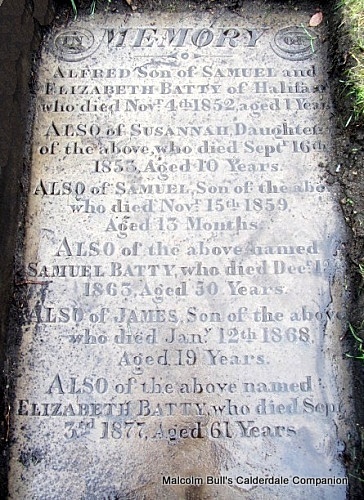 IN MEMORY OF
ALFRED Son of SAMUEL and
ELIZABETH BATTY of Halifax
who died Novr. 4th 1852, aged 1 Year
ALSO of SUSANNAH, Daughter
of the above, who died Septr. 16th
1853, Aged 10 Years.
ALSO of SAMUEL, Son of the above
who died Novr. 15th 1859,
Aged 13 Months.
ALSO of the above named
SAMUEL BATTY, who died Decr.
1863, Aged 50 Years.
ALSO of JAMES, Son of the above
who died Jany. 12th 1868,
Aged 19 Years.
ALSO of the above named
ELIZABETH BATTY, who died Septr
3rd 1877, Aged 61 Years.
Malcolm Bull's Calderdale Companion